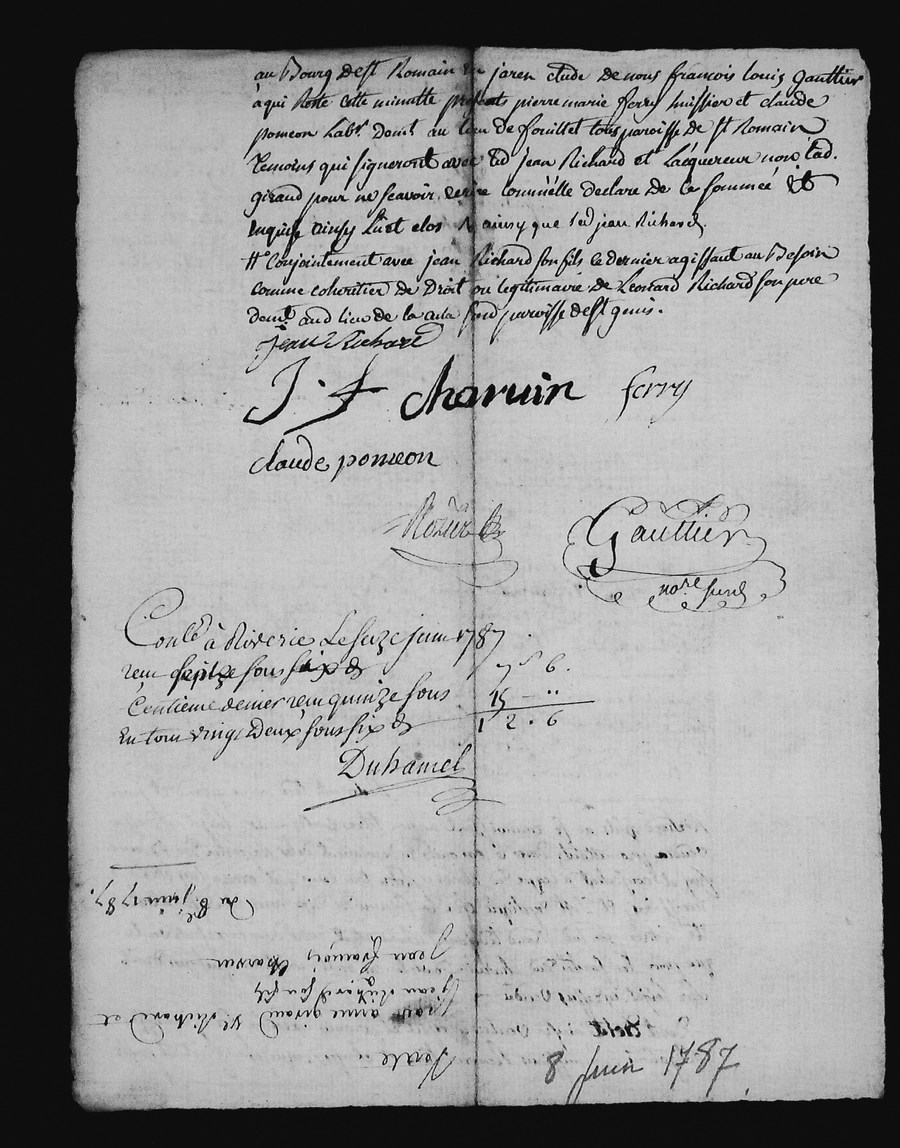 au Bourg de st Romain en jaren etude de nous françois louis gauttier
à qui Reste cette minutte presents pierre marie ferry huissier et claude
pomeon labr. demt. au lieu de fouillet tous paroisse de st Romain
temoins qui signeront avec led jean Richard et l'acquereur non lad.
giraud pour ne scavoir, ecrire comm'elle declare de ce sommeé et
enquise ainsy lu et clos ainsy que led jean Richard
# Conjointement avec jean Richard son fils ce dernier agissant au Besoin
comme coheritier de Droit ou legitimaire de Leonard Richard son pere
demt. aud lieu de la paroisse de st genis.
Jean Richard
J. f charvin ferry
claude pomeon
Gauttier
nore
Conlé à Riverie Le seize juin 1787
reçu sous six d 7s 6.
Centieme denier reçu quinze sous 15 - "
En tout vingt Deux sous six d 1 2 . 6
Duhamel
Vente
par anne giraud Ve. Richard et
jean Richard son fils
à
Jean françois Charvin
du 8e. juin 1787.
8 Juin 1787